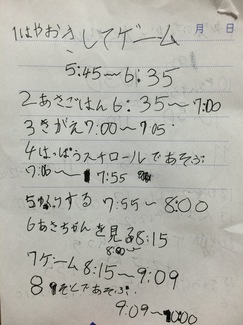 月 日
1はやおきしてゲーム
5:45〜6:35
2あさごはん6:35〜7:00
3きがえ7:00〜705
4はっぽうスチロールであそぶ
7:55
する 7:55〜8:00
6あさちゃんを見る8:15
8:00〜
7ゲーム8:15〜9:09
8そとであそぶ
9:09〜10:00